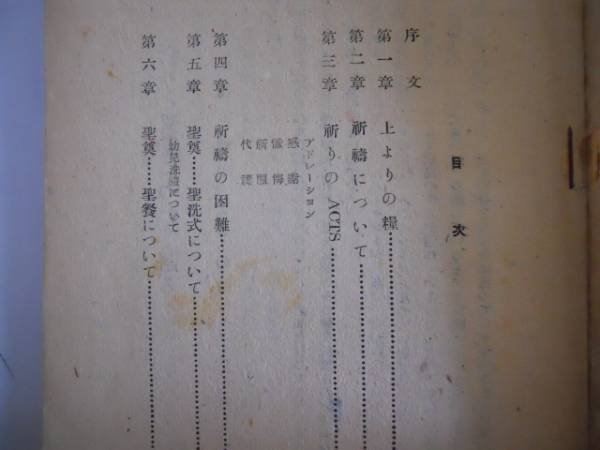 目次
序文
第一章 上よりの糧
第二章 祈禱について
第三章 祈りの ACTS
アドレーション
感謝
懺悔
祈願
代禱
第四章 祈禱の困難
第五章 聖奠……聖洗式について
幼児洗礼について
第六章 聖奠……聖餐について